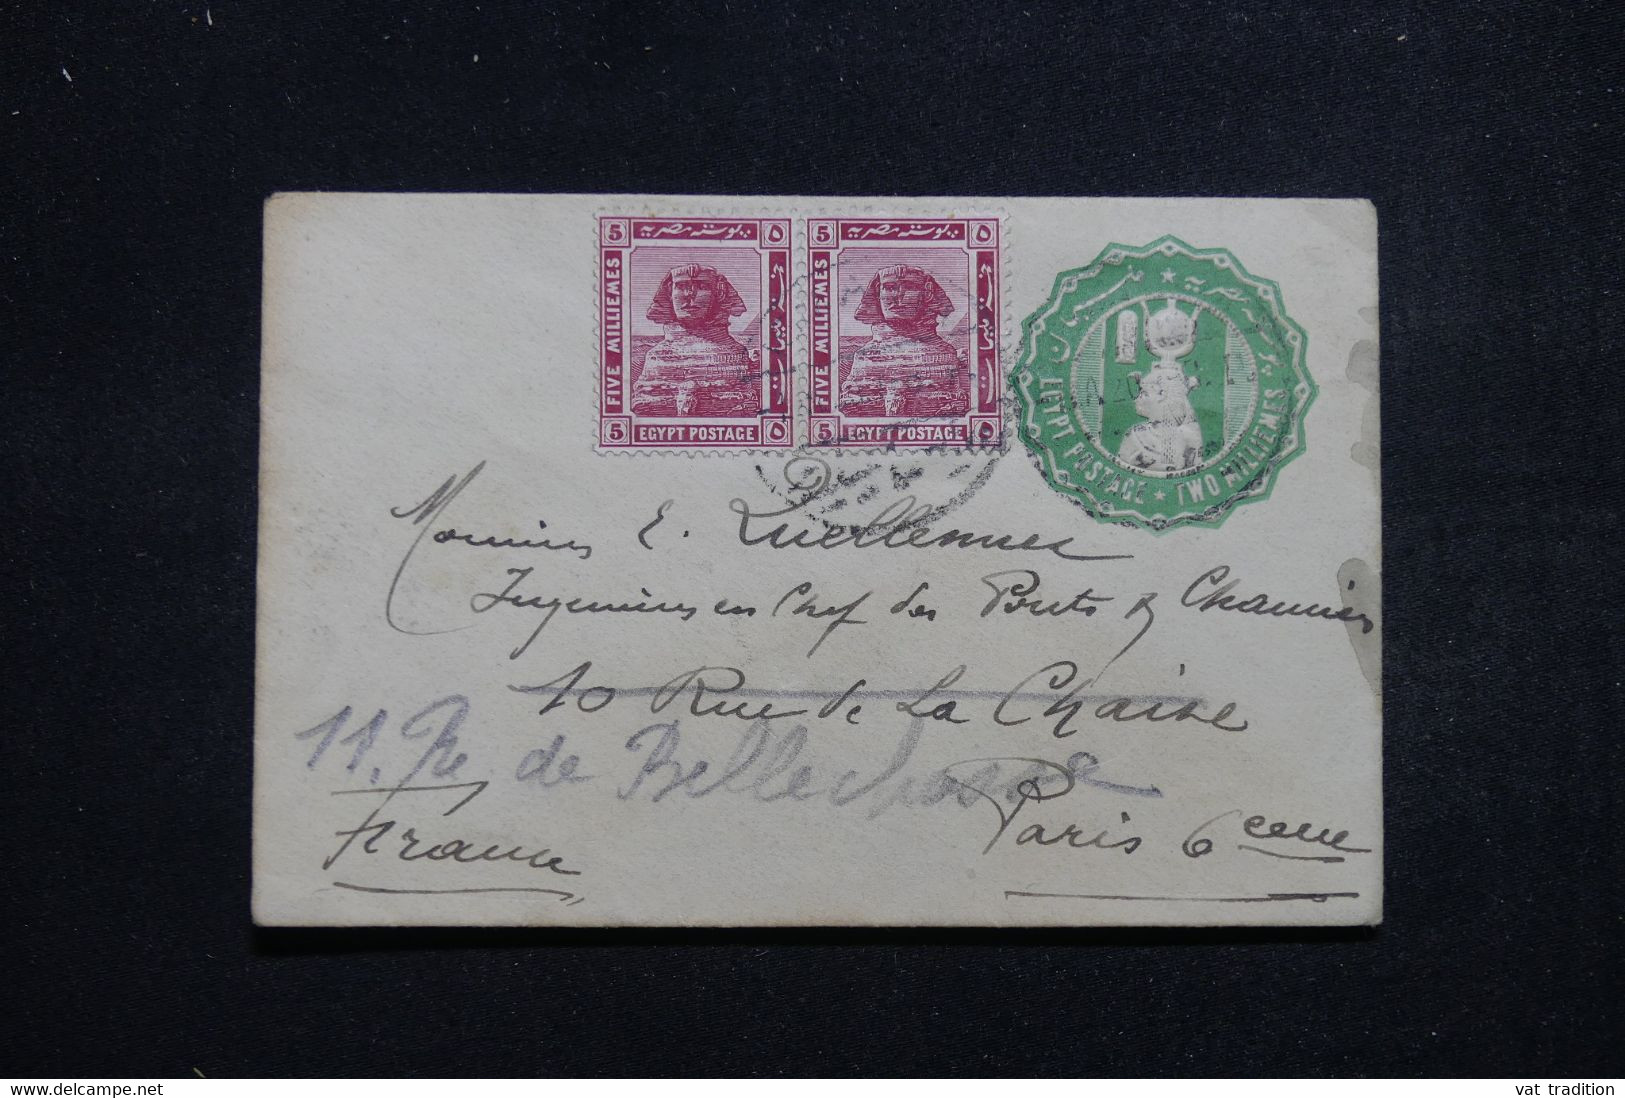 5 بوسته مصرية ٥
FIVE MILLIEMES
5 EGYPT POSTAGE ٥
5 بوسته مصرية ٥
FIVE MILLIEMES
5 EGYPT POSTAGE ٥
بوسته مصرية
EGYPT POSTAGE ★ TWO MILLIEMES
Monsieur E.
Ingénieur en Chef des Ponts & Chaussées
10 Rue de La Chaise
11. Re de Bellechasse
Paris 6ème
France
delcampe.net
vat tradition